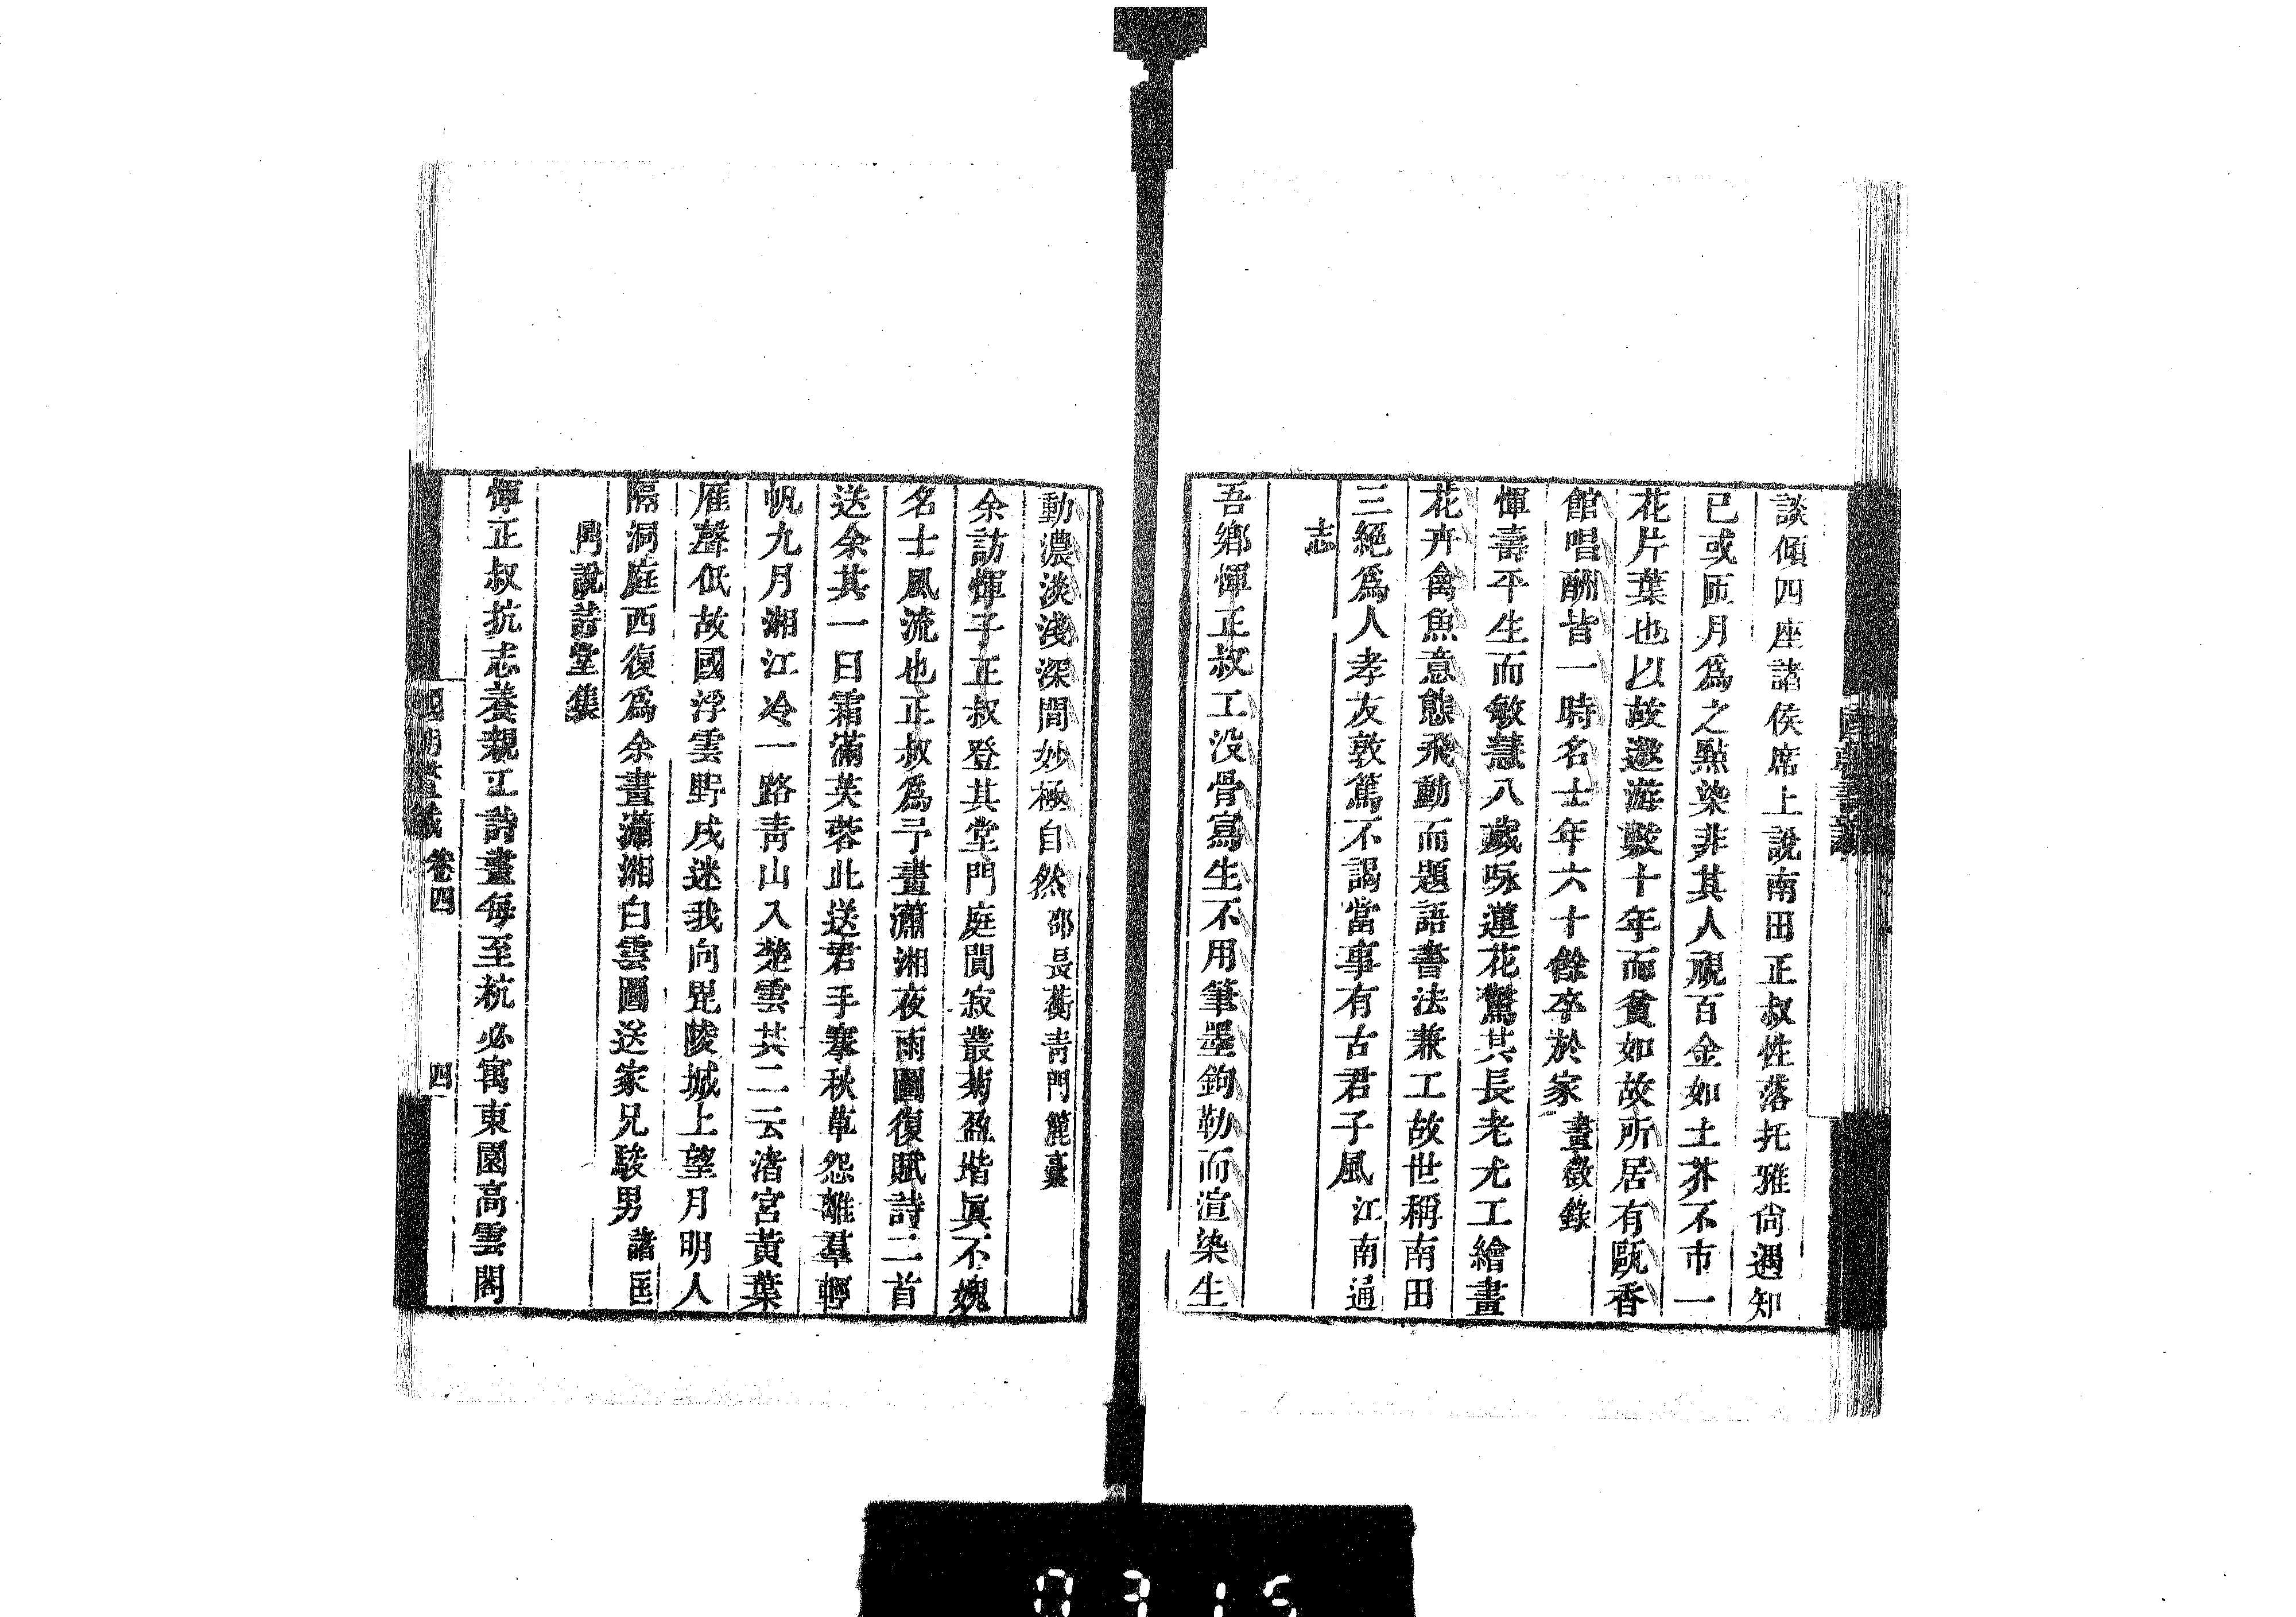 談傾四座諸侯席上說南田正叔性落托雅尙遇知
已或匝月爲之點染非其人視百金如土芥不市一
花片葉也以故遨游數十年而貧如故所居有甌香
館唱酬皆一時名士年六十餘卒於家畫徵錄
惲壽平生而敏慧八歲咏蓮花驚其長老尤工繪畫
花卉禽魚意態飛動而題語書法兼工故世稱南田
三絕爲人孝友敦篤不謁當事有古君子風江南通
志
吾鄉惲正叔工没骨寫生不用筆墨鉤勒而渲染生
動濃淡淺深間妙極自然邵長蘅青門簏藁
余訪惲子正叔登其堂門庭閴寂叢菊盈堦眞不媿
名士風流也正叔爲予畫瀟湘夜雨圖復賦詩二首
送余其一曰霜滿芙蓉此送君手搴秋草怨離羣輕
帆九月湘江冷一路青山入楚雲其二云渚宮黃葉
雁聲低故國浮雲野戍迷我向毘陵城上望月明人
隔洞庭西復爲余畫瀟湘白雲圖送家兄駿男諸匡
鼎說詩堂集
惲正叔抗志養親工詩畫每至杭必寓東園高雲閣
國朝畫識 卷四 四
國朝畫識
0315